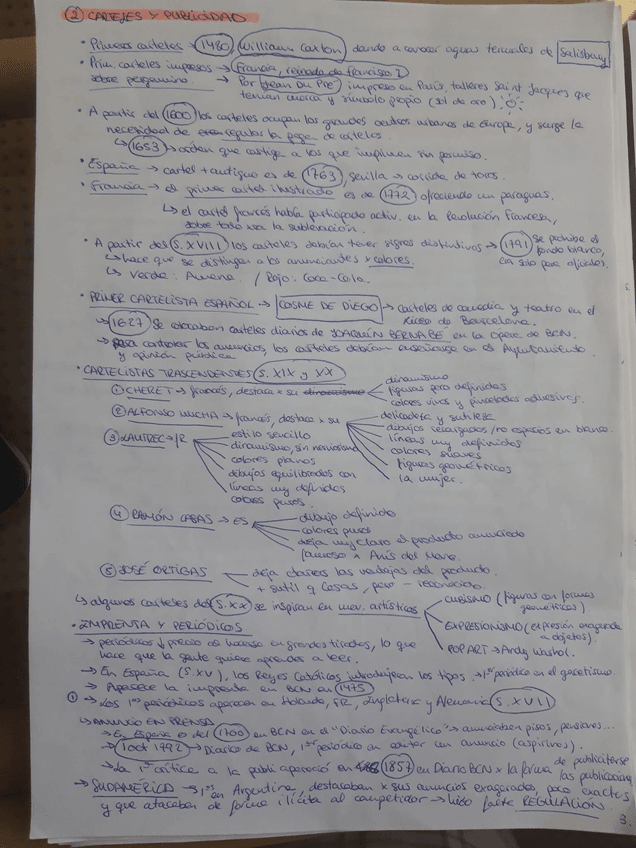 ② CARTELES Y PUBLICIDAD
• Primeros carteles → 1480, William Caxton dando a conocer aguas termales de Salisbury
• Prim. carteles impresos sobre pergamino → Francia, reinado de Francisco I
→ Por Jean Du Pré, impreso en París, talleres Saint Jacques que tenían marca y símbolo propio (sol de oro)
• A partir del 1600 los carteles ocupan los grandes centros urbanos de Europa, y surge la
necesidad de regular la pega de carteles.
↳ 1653 → orden que castiga a los que imprimen sin permiso.
• España → cartel + antiguo es de 1763, Sevilla → corrida de toros.
• Francia → el primer cartel ilustrado es de 1772 ofreciendo un paraguas.
↳ el cartel francés había participado activ. en la Revolución Francesa,
sobre todo xa la sublevación.
• A partir del S. XVIII los carteles debían tener signos distintivos → 1791 Se prohibe el fondo blanco, era solo para oficiales.
↳ hace que se distingan a los anunciantes x colores.
↳ Verde: Amena. / Rojo: Coca-Cola.
• PRIMER CARTELISTA ESPAÑOL → COSME DE DIEGO → carteles de comedia y teatro en el Liceo de Barcelona.
→ 1827 Se colocaban carteles diarios de JOAQUÍN BERNABE en la Opera de BCN.
→ para controlar los anuncios, los carteles debían enseñarse en el Ayuntamiento
y opinión pública
• CARTELISTAS TRASCENDENTES S. XIX y XX
① CHERET → francés, destaca x su
dinamismo
figuras poco definidas
colores vivos y
② ALFONSO MUCHA → francés, destaca x su
delicadeza y sutileza
dibujos recargados / no espacios en blanco.
líneas muy definidas
colores suaves
figuras geométricas
la mujer.
③ LAUTREC → FR
estilo sencillo
dinamismo, sin nerviosismo
colores planos
dibujos equilibrados con
líneas muy definidas
colores puros.
④ RAMÓN CASAS → ES
dibujo definido
colores puros
deja muy claro el producto anunciado
famoso x Anís del Mono.
⑤ JOSÉ ORTIGAS
deja claras las ventajas del producto.
+ sutil q Casas, pero - reconocido.
↳ algunos carteles del S. XX se inspiran en mov. artísticos
CUBISMO (figuras con formas geométricas).
EXPRESIONISMO (expresión exagerada a objetos).
POP ART → Andy Warhol.
• IMPRENTA Y PERIÓDICOS
→ periódicos ↓ precio al hacerse en grandes tiradas, lo que
hace que la gente quiera aprender a leer.
→ En España (S. XV), los Reyes Católicos introdujeron los tipos. → 1er periódico en el
→ Aparece la imprenta en BCN en 1475
① → Los 1os periódicos aparecen en Holanda, FR, Inglaterra y Alemania S. XVII
↳ ANUNCIO EN PRENSA
→ En España a del 1700 en BCN en el "Diario Evangélico" → anunciaban pisos, pensiones...
→ 1 oct 1792 → Diario de BCN, 1er periódico en contar con anuncio (aspirinas).
→ La 1ª crítica a la publi apareció en 1857 en Diario BCN x la forma de publicitarse
→ SUDAMERICA → 1os en Argentina, destacaban x sus anuncios exagerados, poco exactos
y que atacaban de forma ilícita al competidor → hubo fuerte REGULACIÓN.
3.